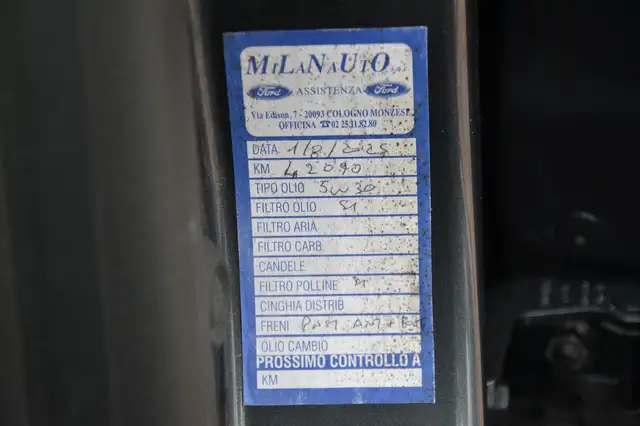 MiLaNaUtO s.r.l.
Ford ASSISTENZA Ford
Via Edison, 7 - 20093 COLOGNO MONZESE
OFFICINA ☎02 25.31.82.80
DATA 1/8/2025
KM 42090
TIPO OLIO 5W30
FILTRO OLIO SI
FILTRO ARIA
FILTRO CARB.
CANDELE
FILTRO POLLINE SI
CINGHIA DISTRIB
FRENI ANT +
OLIO CAMBIO
PROSSIMO CONTROLLO A
KM